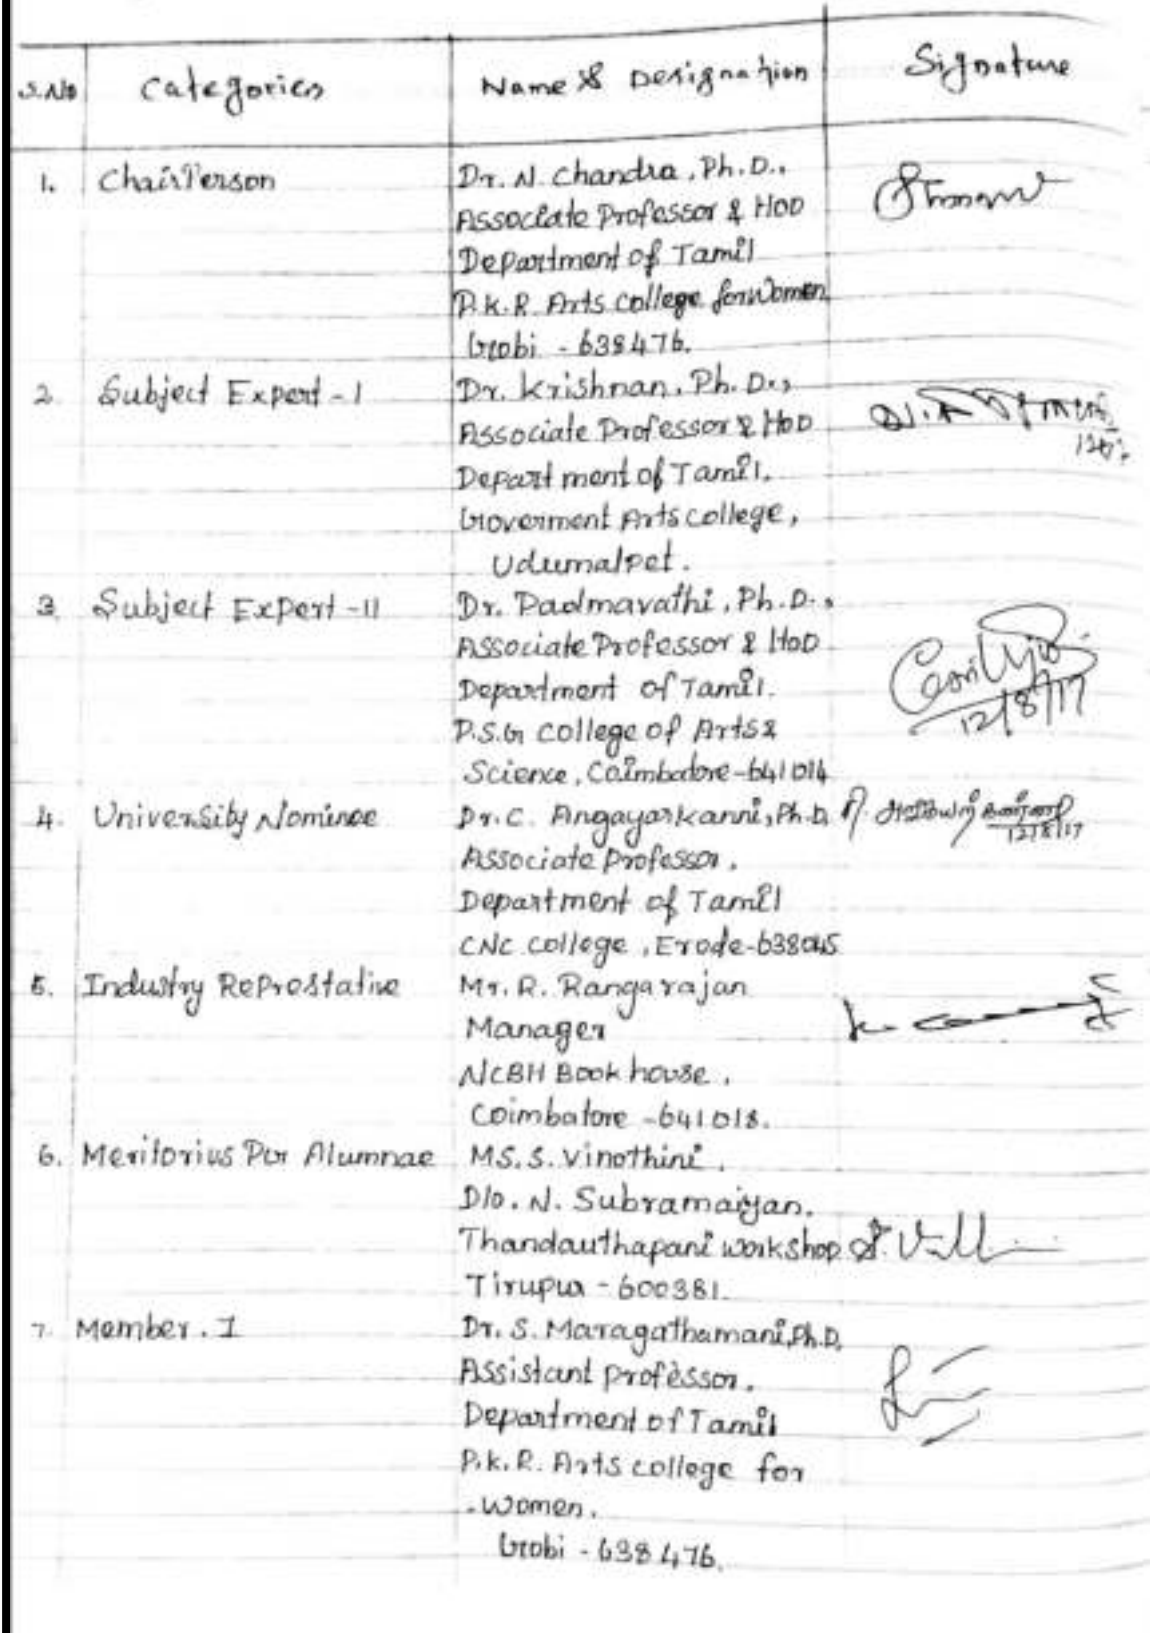 S.No Categories Name & Designation Signature
1. ChairPerson Dr. N. Chandra, Ph.D.,
Associate Professor & HOD
Department of Tamil
P.K.R. Arts College for Women
Gobi - 638476.
2. Subject Expert - I Dr. Krishnan, Ph.D.,
Associate Professor & HOD
Department of Tamil.
Goverment Arts college,
Udumalpet.
3. Subject Expert - II Dr. Padmavathi, Ph.D.,
Associate Professor & HOD
Department of Tamil.
P.S.G College of Arts &
Science, Coimbatore-641014
12/8/17
4. University Nominee Dr. C. Angayarkanni, Ph.D
12/8/17
Associate Professor,
Department of Tamil
CNC College, Erode-638045
5. Industry Reprostative Mr. R. Rangarajan
Manager
NCBH Book house,
Coimbatore - 641018.
6. Meritorius Alumnae MS. S. Vinothini,
D/o. N. Subramaiyan,
Thandauthapani workshop
Tirupur - 600381.
7. Member. I Dr. S. Maragathamani, Ph.D,
Assistant professor,
Department of Tamil
P.K.R. Arts college for
women,
Gobi - 638 476.